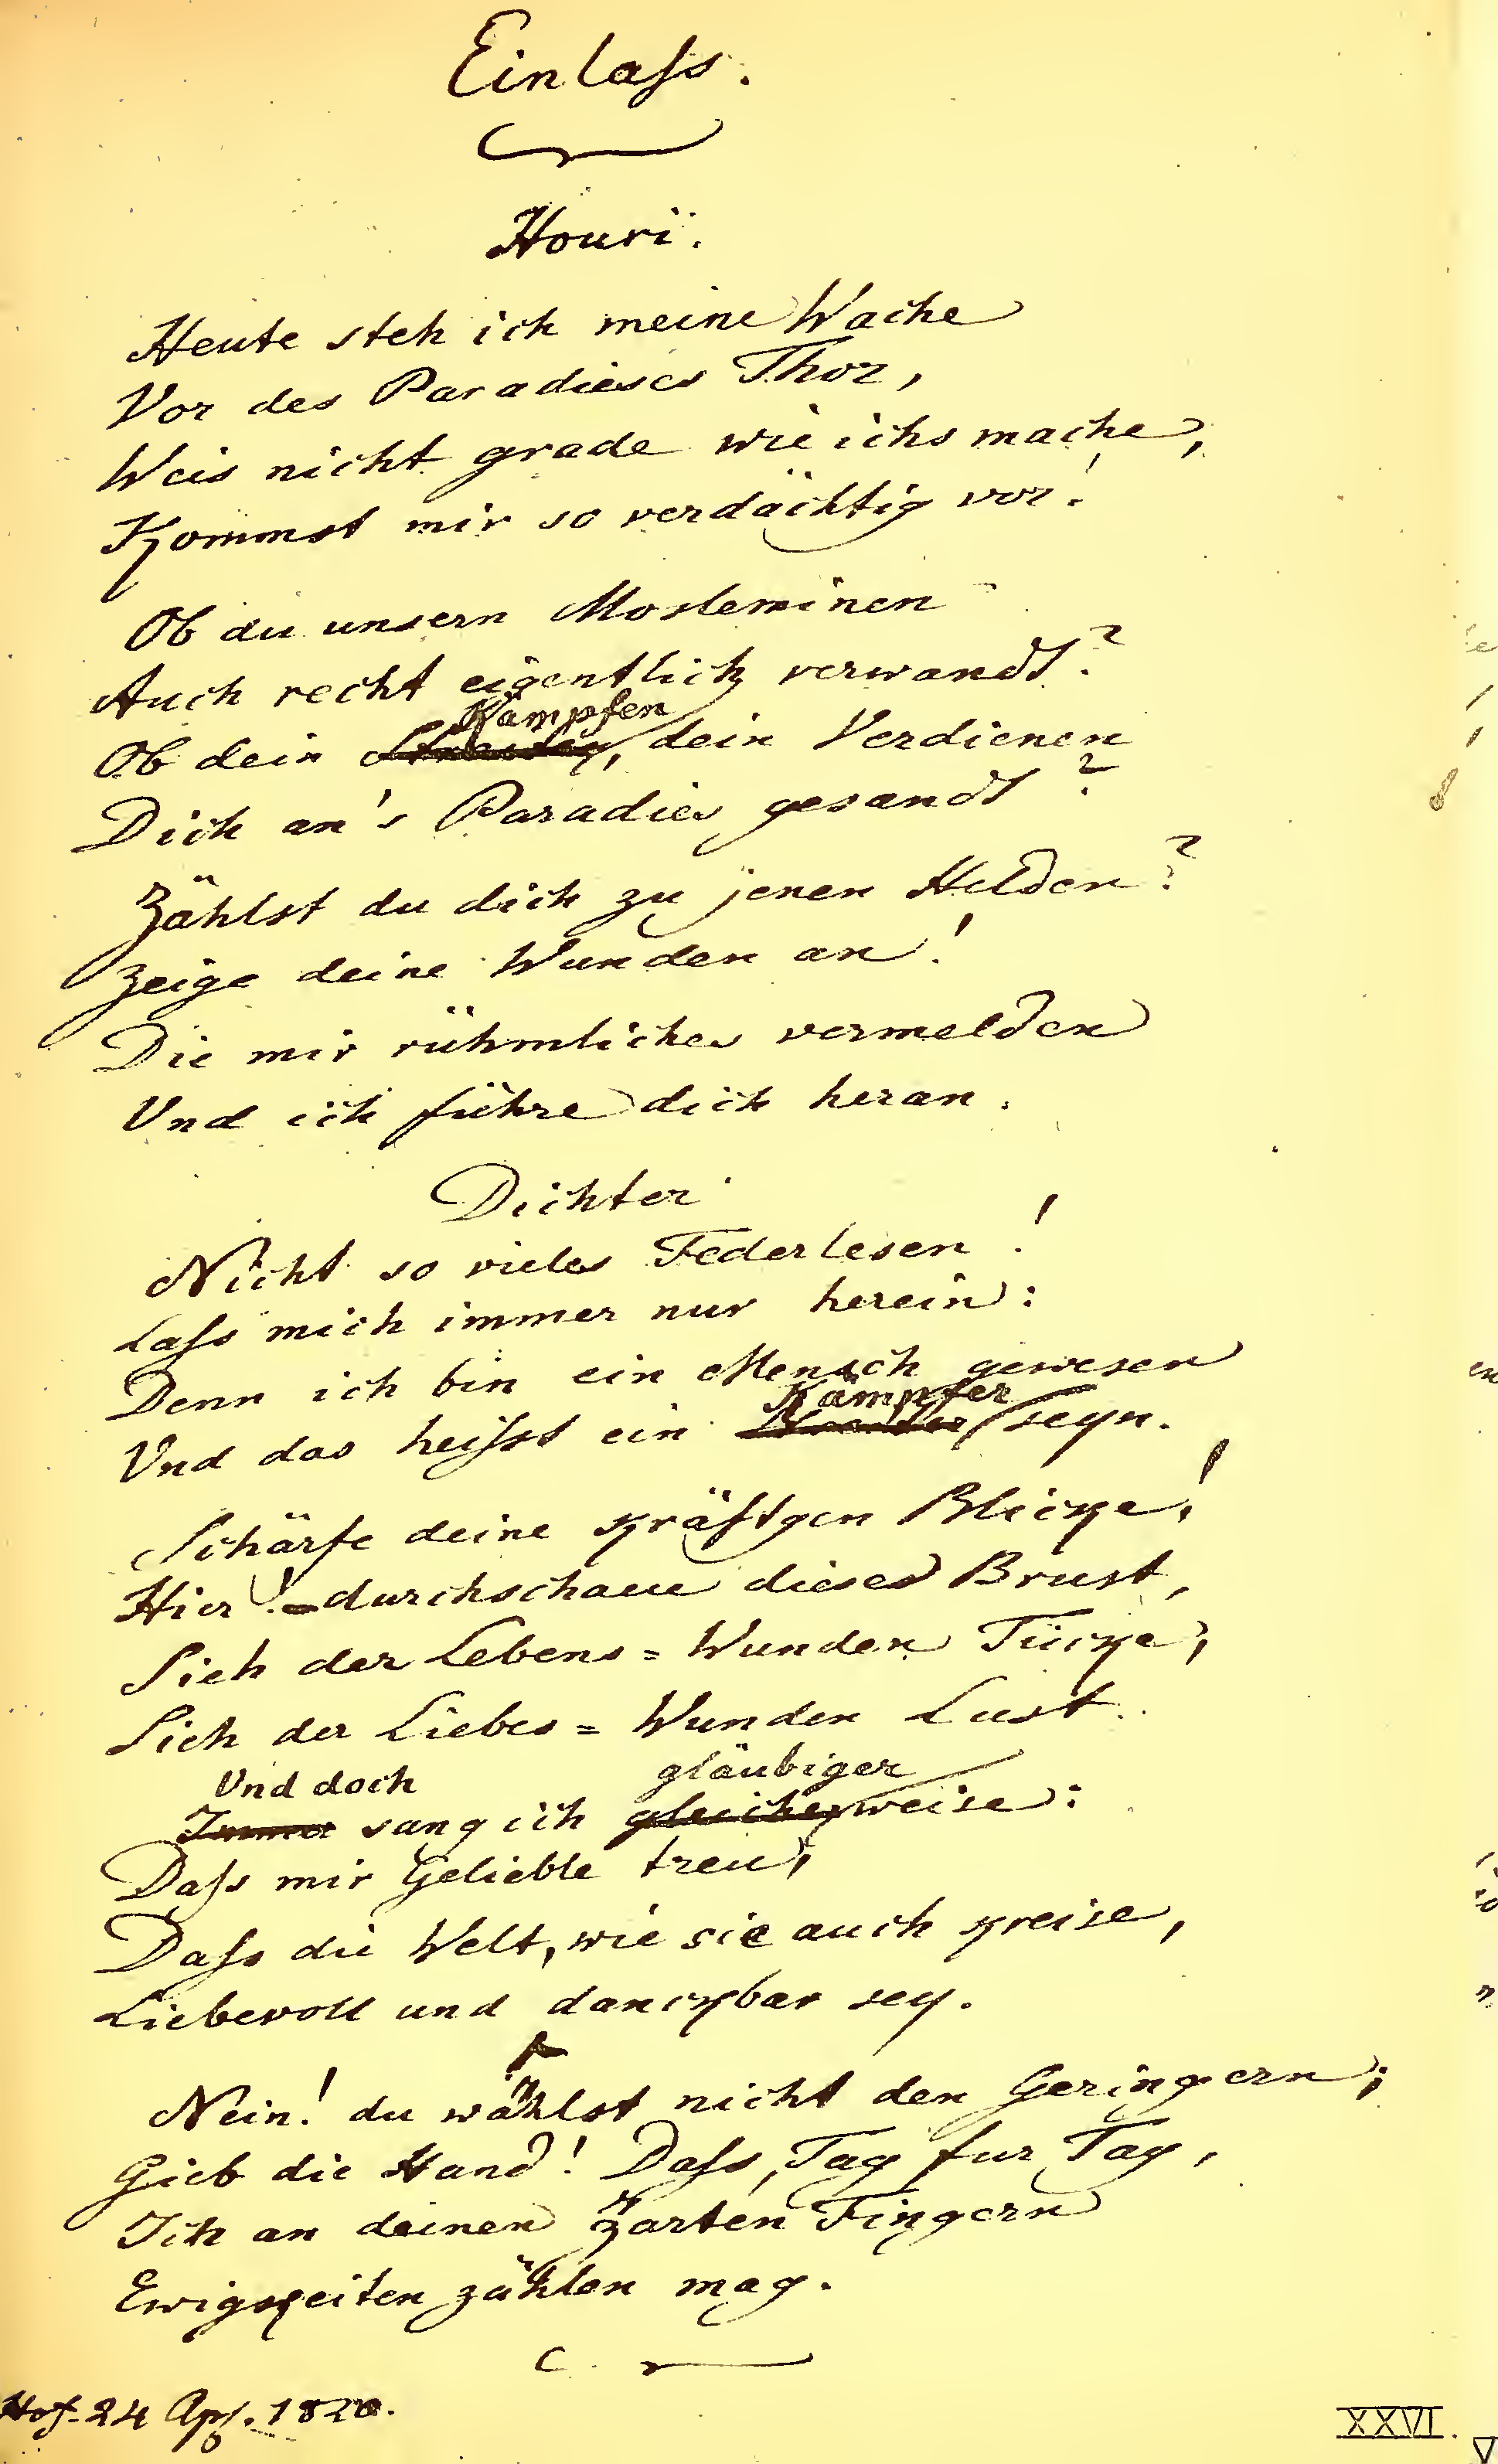 Einlaſs.
Houri.
Heute steh ich meine Wache
Vor des Paradieses Thor,
Weis nicht grade wie ichs mache,
Kommst mir so verdächtig vor!
Ob du unsern Mosleminen
Auch recht eigentlich verwandt?
Kämpfen
Ob dein , dein Verdienen
Dich an's Paradies gesandt?
Zählst du dich zu jenen Helden?
Zeige deine Wunden an!
Die mir rühmliches vermelden
Und ich führe dich heran.
Dichter
Nicht so vieles Federlesen!
Laſs mich immer nur herein:
Denn ich bin ein Mensch gewesen
Kämpfer
Und das heiſst ein seyn.
Schärfe deine kräftgen Blicke!
Hier! durchschaue diese Brust,
Sieh der Lebens=Wunden Tücke,
Sieh der Liebes=Wunden Lust.
Und doch gläubiger
Immer sang ich gleicherweise:
Daſs mir Geliebte treu,
Daſs die Welt, wie sie auch kreise,
Liebevoll und danckbar sey.
Nein! du wählst nicht den Geringern;
Gieb die Hand! Daſs, Tag fur Tag,
Ich an deinen zarten Fingern
Ewigkeiten zählen mag.
Hof. 24 Apr. 1820.
XXVI.